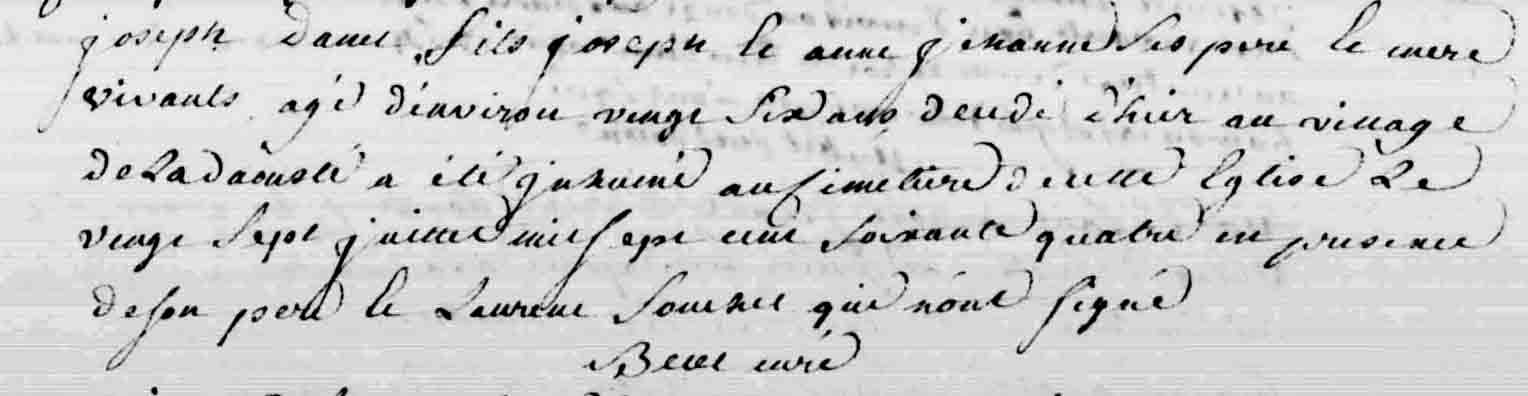 joseph fils joseph et anne jehanne ses pere et mere
vivants agé d'environ vingt six ans decedé d'hier au village
de Ladaousté a été inhumé au simetiere de cette Eglise Le
vingt sept juillet mil sept cent soixante quatre en presence
de son pere et Laurent qui n'ont signé
curé